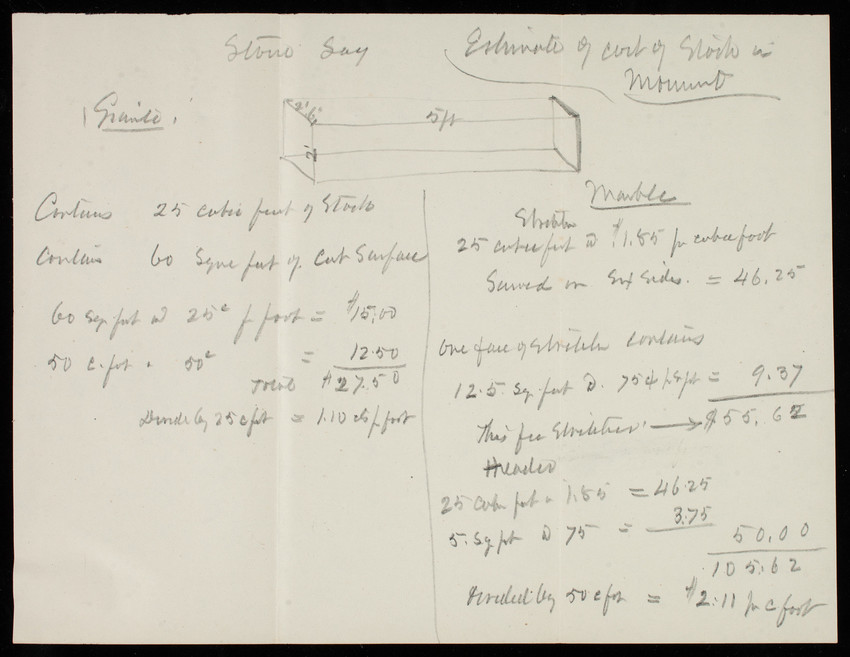 Stone Say
Estimate of cost of Stock in
Monument
Granite.
2'6"
5 ft
2'
Contains 25 cubic feet of Stock
Contains 60 Sqre feet of Cut Surface
60 Sqr. feet @ 25c p foot = $15.00
50 c. feet " 50c = 12.50
Total $27.50
Divide by 25 c feet = 1.10 cts p foot
Marble
Stretcher
25 cubic feet @ $1.85 pr cubic foot
Sawed on Six Sides. = 46.25
One face of Stretcher contains
12.5. Sq. feet @. 75¢ p Sq ft = 9.37
This for Stretcher. → $55.62
Header
25 Cubic feet " 1.85 = 46.25
5. Sq ft @ 75 = 3.75
50.00
105.62
Divided by 50 c feet = $2.11 pr c foot